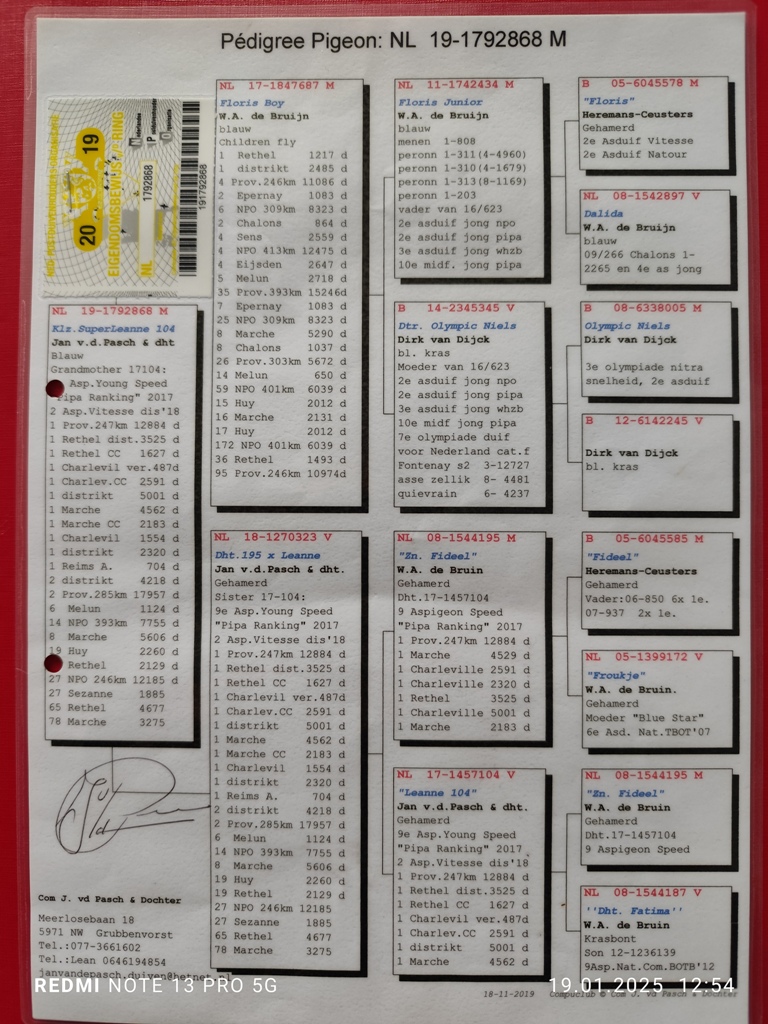 Pédigree Pigeon: NL 19-1792868 M
20 19
EIGENDOMSBEWIJS RING
NL 1792868
191792868
NL 19-1792868 M
Klz.SuperLeanne 104
Jan v.d.Pasch & dht
Blauw
Grandmother 17104:
Asp.Young Speed
"Pipa Ranking" 2017
2 Asp.Vitesse dis'18
1 Prov.247km 12884 d
1 Rethel dist.3525 d
1 Rethel CC 1627 d
1 Charlevil ver.487d
1 Charlev.CC 2591 d
1 distrikt 5001 d
1 Marche 4562 d
1 Marche CC 2183 d
1 Charlevil 1554 d
1 distrikt 2320 d
1 Reims A. 704 d
2 distrikt 4218 d
2 Prov.285km 17957 d
6 Melun 1124 d
14 NPO 393km 7755 d
8 Marche 5606 d
19 Huy 2260 d
Rethel 2129 d
27 NPO 246km 12185 d
27 Sezanne 1885
65 Rethel 4677
78 Marche 3275
Com J. vd Pasch & Dochter
Meerlosebaan 18
5971 NW Grubbenvorst
Tel.:077-3661602
Tel.:Lean 0646194854
janvandepasch.duiven@hetnet.nl
NL 17-1847687 M
Floris Boy
W.A. de Bruijn
blauw
Children fly
1 Rethel 1217 d
1 distrikt 2485 d
4 Prov.246km 11086 d
2 Epernay 1083 d
6 NPO 309km 8323 d
2 Chalons 864 d
4 Sens 2559 d
4 NPO 413km 12475 d
4 Eijsden 2647 d
5 Melun 2718 d
35 Prov.393km 15246d
7 Epernay 1083 d
25 NPO 309km 8323 d
8 Marche 5290 d
8 Chalons 1037 d
26 Prov.303km 5672 d
14 Melun 650 d
59 NPO 401km 6039 d
15 Huy 2012 d
16 Marche 2131 d
17 Huy 2012 d
172 NPO 401km 6039 d
36 Rethel 1493 d
95 Prov.246km 10974d
NL 18-1270323 V
Dht.195 x Leanne
Jan v.d.Pasch & dht.
Gehamerd
Sister 17-104:
9e Asp.Young Speed
"Pipa Ranking" 2017
2 Asp.Vitesse dis'18
1 Prov.247km 12884 d
1 Rethel dist.3525 d
1 Rethel CC 1627 d
1 Charlevil ver.487d
1 Charlev.CC 2591 d
1 distrikt 5001 d
1 Marche 4562 d
1 Marche CC 2183 d
1 Charlevil 1554 d
1 distrikt 2320 d
1 Reims A. 704 d
2 distrikt 4218 d
2 Prov.285km 17957 d
6 Melun 1124 d
14 NPO 393km 7755 d
8 Marche 5606 d
19 Huy 2260 d
19 Rethel 2129 d
27 NPO 246km 12185
27 Sezanne 1885
65 Rethel 4677
78 Marche 3275
NL 11-1742434 M
Floris Junior
W.A. de Bruijn
blauw
menen 1-808
peronn 1-311(4-4960)
peronn 1-310(4-1679)
peronn 1-313(8-1169)
peronn 1-203
vader van 16/623
2e asduif jong npo
2e asduif jong pipa
3e asduif jong whzb
10e midf. jong pipa
NL 14-2345345 V
Dtr. Olympic Niels
Dirk van Dijck
bl. kras
Moeder van 16/623
2e asduif jong npo
2e asduif jong pipa
3e asduif jong whzb
10e midf jong pipa
7e olympiade duif
voor Nederland cat.f
Fontenay s2 3-12727
asse zellik 8- 4481
quievrain 6- 4237
NL 08-1544195 M
"Zn. Fideel"
W.A. de Bruin
Gehamerd
Dht.17-1457104
9 Aspigeon Speed
"Pipa Ranking" 2017
1 Prov.247km 12884 d
1 Marche 4529 d
1 Charleville 2591 d
1 Charleville 2320 d
1 Rethel 3525 d
1 Charleville 5001 d
1 Marche 2183 d
NL 17-1457104 V
"Leanne 104"
Jan v.d.Pasch & dht.
Gehamerd
9e Asp.Young Speed
"Pipa Ranking" 2017
2 Asp.Vitesse dis'18
1 Prov.247km 12884 d
1 Rethel dist.3525 d
1 Rethel CC 1627 d
1 Charlevil ver.487d
1 Charlev.CC 2591 d
1 distrikt 5001 d
1 Marche 4562 d
B 05-6045578 M
"Floris"
Heremans-Ceusters
Gehamerd
2e Asduif Vitesse
2e Asduif Natour
NL 08-1542897 V
Dalida
W.A. de Bruijn
blauw
09/266 Chalons 1-
2265 en 4e as jong
B 08-6338005 M
Olympic Niels
Dirk van Dijck
3e olympiade nitra
snelheid, 2e asduif
B 12-6142245 V
Dirk van Dijck
bl. kras
B 05-6045585 M
"Fideel"
Heremans-Ceusters
Gehamerd
Vader:06-850 6x 1e.
07-937 2x 1e.
NL 05-1399172 V
"Froukje"
W.A. de Bruin.
Gehamerd
Moeder "Blue Star"
6e Asd. Nat.TBOT'07
NL 08-1544195 M
"Zn. Fideel"
W.A. de Bruin
Gehamerd
Dht.17-1457104
9 Aspigeon Speed
NL 08-1544187 V
''Dht. Fatima''
W.A. de Bruin
Krasbont
Son 12-1236139
9Asp.Nat.Com.BOTB'12
18-11-2019 Compuclub © Com J. vd Pasch & Dochter
REDMI NOTE 13 PRO 5G
19.01.2025 12:54